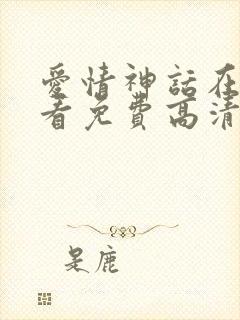 愛情神話在
看免費高清
是鹿